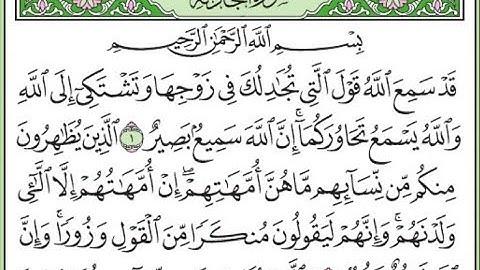 بِسْمِ اللَّهِ الرَّحْمَٰنِ الرَّحِيمِ
قَدْ سَمِعَ اللَّهُ قَوْلَ الَّتِي تُجَادِلُكَ فِي زَوْجِهَا وَتَشْتَكِي إِلَى اللَّهِ
وَاللَّهُ يَسْمَعُ تَحَاوُرَكُمَا ۚ إِنَّ اللَّهَ سَمِيعٌ بَصِيرٌ ١ الَّذِينَ يُظَاهِرُونَ
مِنكُم مِّن نِّسَائِهِم مَّا هُنَّ أُمَّهَاتِهِمْ ۖ إِنْ أُمَّهَاتُهُمْ إِلَّا اللَّائِي
وَلَدْنَهُمْ ۚ وَإِنَّهُمْ لَيَقُولُونَ مُنكَرًا مِّنَ الْقَوْلِ وَزُورًا ۚ وَإِنَّ